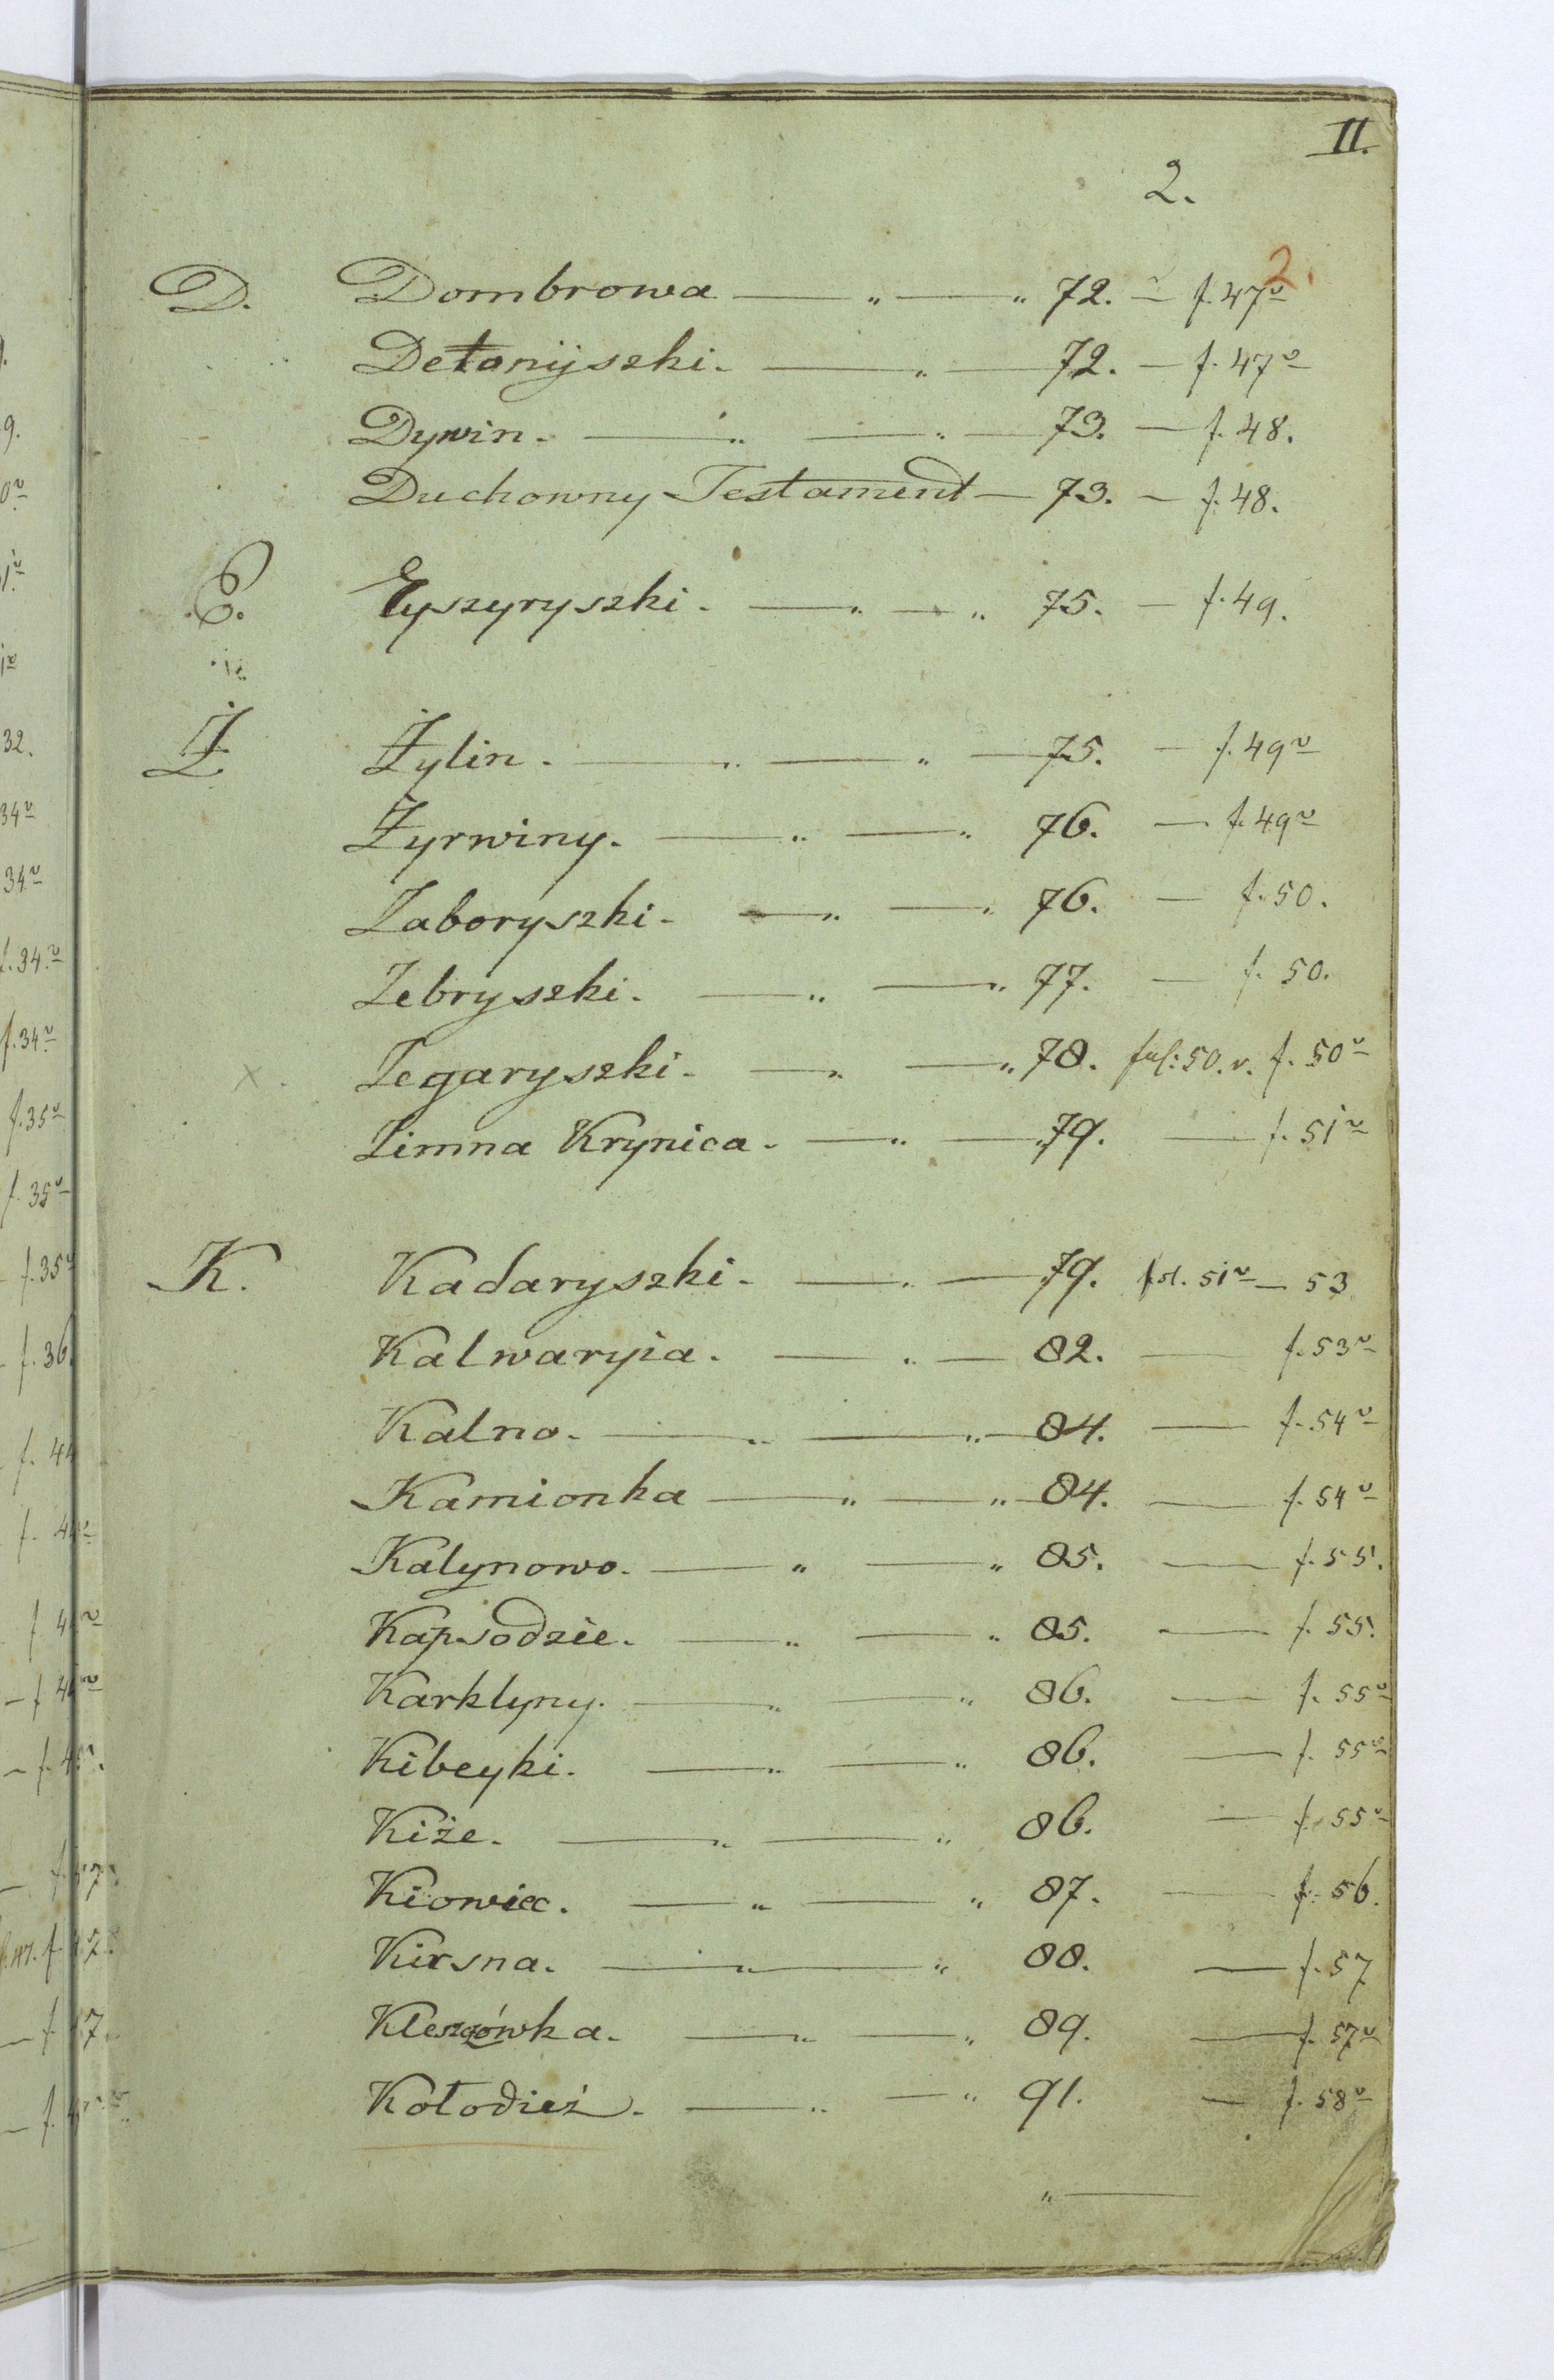 II.
2.
2.
D. Dombrowa — „ — „ 72. — f. 47v
Detonijszki. — „ — 72. — f. 47v
Dywin. — „ — „ — 73. — f. 48.
Duchowny Testament — 73. — f. 48.
E. Eyszyryszki. — „ — „ 75. — f. 49.
Ż Żylin. — „ — „ — 75. — f. 49v
Żyrwiny. — „ — „ 76. — f. 49v
Zaboryszki. — „ — „ 76. — f. 50.
Zebryszki. — „ — „ 77. — f. 50.
x. Zegaryszki. — „ — „ 78. fol: 50. v. f. 50v
Zimna Krynica. — „ — „ 79. — f. 51v
K. Kadaryszki. — „ — 79. fol. 51v — 53
Kalwaryia. — „ — 82. — f. 53v
Kalno. — „ — „ — 84. — f. 54v
Kamionka — „ — „ — 84. — f. 54v
Kalynowo. — „ — „ 85. — f. 55.
Kapsodzie. — „ — „ 85. — f. 55.
Karklyny. — „ — „ 86. — f. 55v
Kibeyki. — „ — „ 86. — f. 55v
Kiże. — „ — „ 86. — f. 55v
Kiowiec. — „ — „ 87. — f. 56.
Kirsna. — „ — „ 88. — f. 57
Kleszczówka. — „ — „ 89. — f. 57v
Kołodież. — „ — „ 91. — f. 58v
„ —